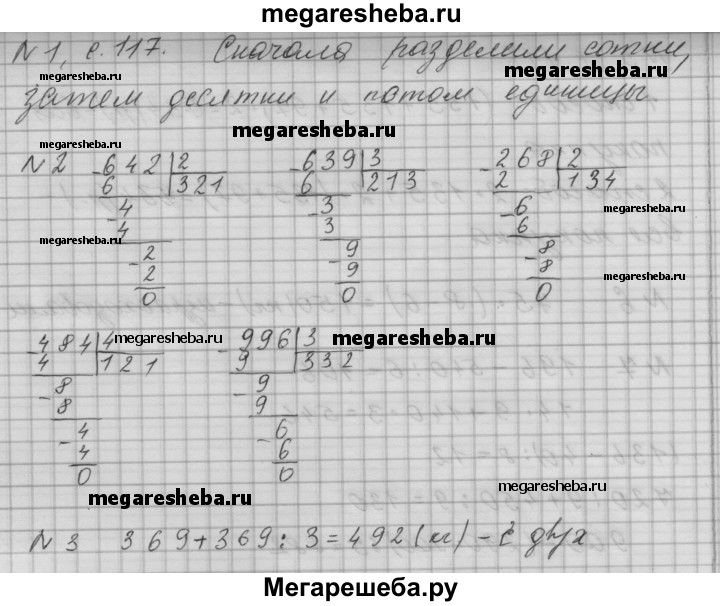 megaresheba.ru
N 1, с. 117. Сначала разделили сотни,
megaresheba.ru
megaresheba.ru
затем десятки и потом единицы
megaresheba.ru
megaresheba.ru
N 2
-642|2
6 321
-4
4
-2
2
0
-639|3
6 213
-3
3
-9
9
0
-268|2
2 134
-6
6
-8
8
0
megaresheba.ru
megaresheba.ru
megaresheba.ru
-484|4
4 121
-8
8
-4
4
0
megaresheba.ru
-996|3
9 332
-9
9
-6
6
0
megaresheba.ru
megaresheba.ru
megaresheba.ru
N 3 369+369:3=492(кг) - с двух
Мегарешеба.ру